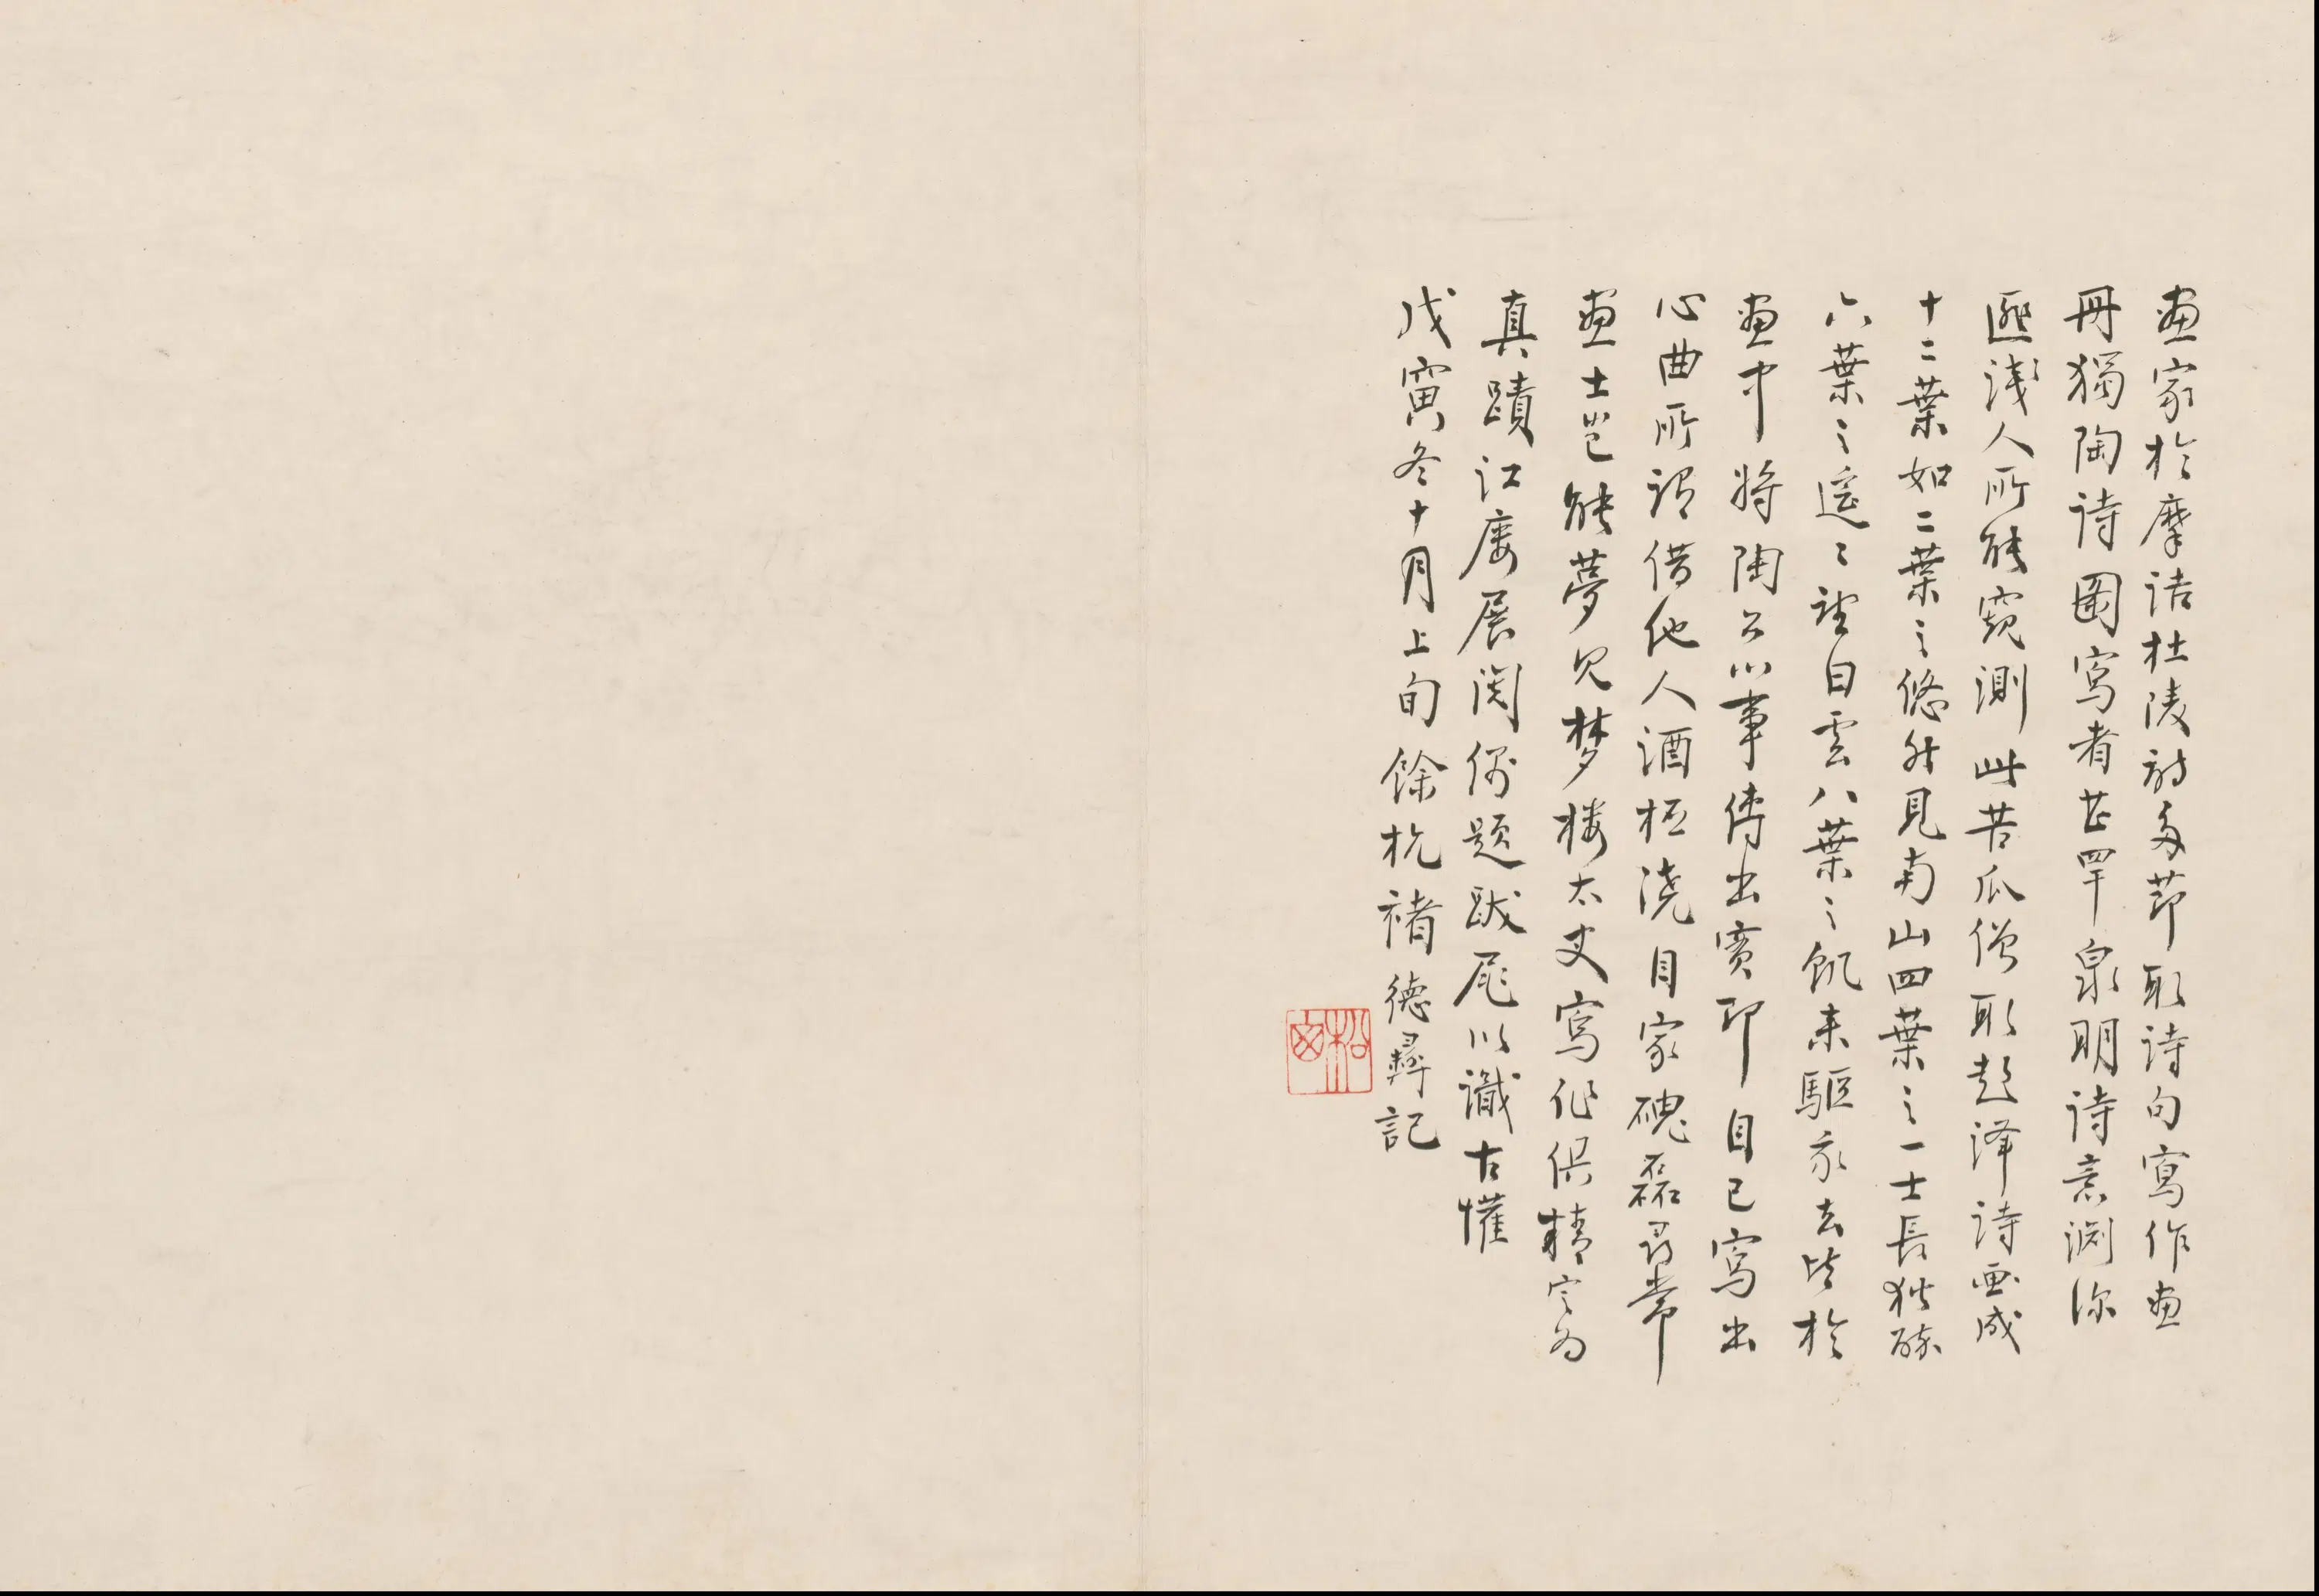 畫家於摩詰杜陵詩多節取詩句寫作畫
冊獨陶詩圖寫者甚罕泉明詩意淵深
匪淺人所能窺測此苦瓜僧取彭澤詩畫成
十二葉如二葉之悠然見南山四葉之一士長獨醉
六葉之遙遙望白雲八葉之飢來驅我去皆於
畫中將陶公心事傳出實即自己寫出
心曲所謂借他人酒杯澆自家磈磊尋常
畫士豈能夢見夢樓太史寫作俱精定為
真蹟江屢展閱倩題跋尾以識古懽
戊寅冬十月上旬餘杭褚德彝記
松窗